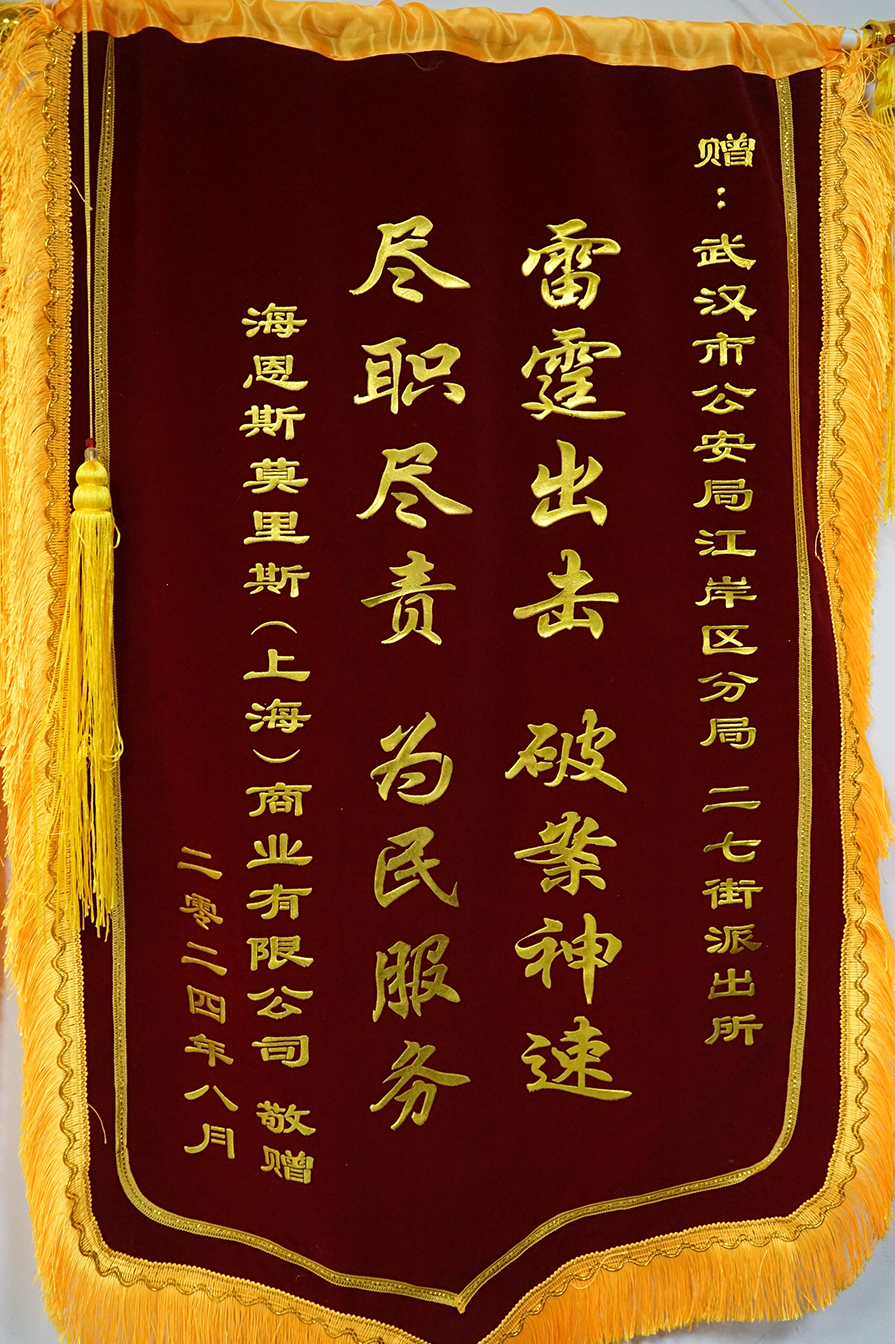 赠：武汉市公安局江岸区分局 二七街派出所
雷霆出击 破案神速
尽职尽责 为民服务
海恩斯莫里斯（上海）商业有限公司 敬赠
二零二四年八月